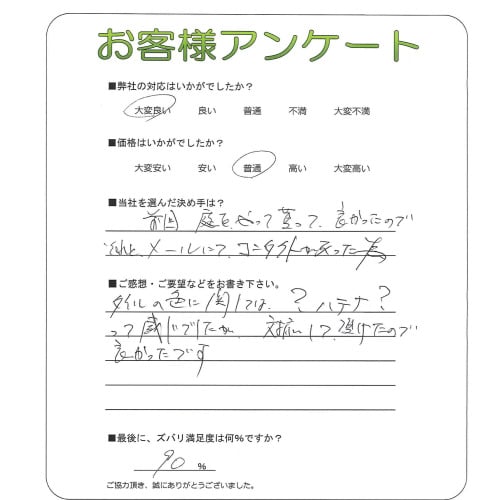 お客様アンケート
■弊社の対応はいかがでしたか？
大変良い 良い 普通 不満 大変不満
■価格はいかがでしたか？
大変安い 安い 普通 高い 大変高い
■当社を選んだ決め手は？
前回 庭をやって貰って、良かったので
それと、メールにて、コンタクトが取れた為
■ご感想・ご要望などをお書き下さい。
タイルの色に関しては、？ ハテナ？
って感じでしたが、対応して頂けたので
良かったです
■最後に、ズバリ満足度は何%ですか？
90 %
ご協力頂き、誠にありがとうございました。